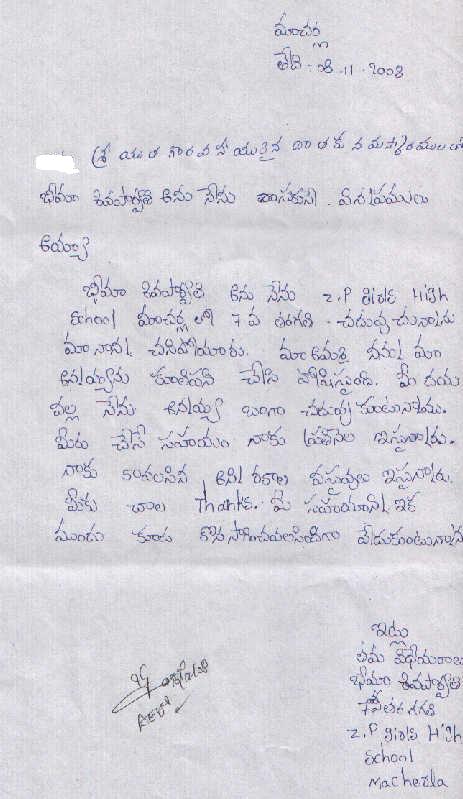 మాచర్ల
తేది - 28-11-2008
శ్రీ యుత గౌరవనీయులైన దాతకు నమస్కారములతో
భీమా శివపార్వతి అను నేను వ్రాయునది. విన్నపములు
అయ్యా
భీమా శివపార్వతి అను నేను Z.P Girls High
School మాచర్ల లో 7 వ తరగతి చదువుచున్నాను
మా నాన్న చనిపోయారు. మా అమ్మ నన్ను మా
అన్నయ్యను కూలిపని చేసి పోషిస్తుంది. మీ దయ
వల్ల నేను అన్నయ్య బాగా చదువు కుంటున్నాము.
మీరు చేసే సహాయం నాకు ప్రతినెల ఇస్తున్నారు.
నాకు కావలసిన అన్ని రకాల వస్తువులు ఇస్తున్నారు.
మీకు చాల Thanks. మీ సహాయాన్ని ఇక
ముందు కూడ కొనసాగించవలసిందిగా వేడుకుంటున్నాను
ఇట్లు
తమ విధేయురాలు
భీమా శివపార్వతి
7వ తరగతి
Z.P Girls High
School
Macherla